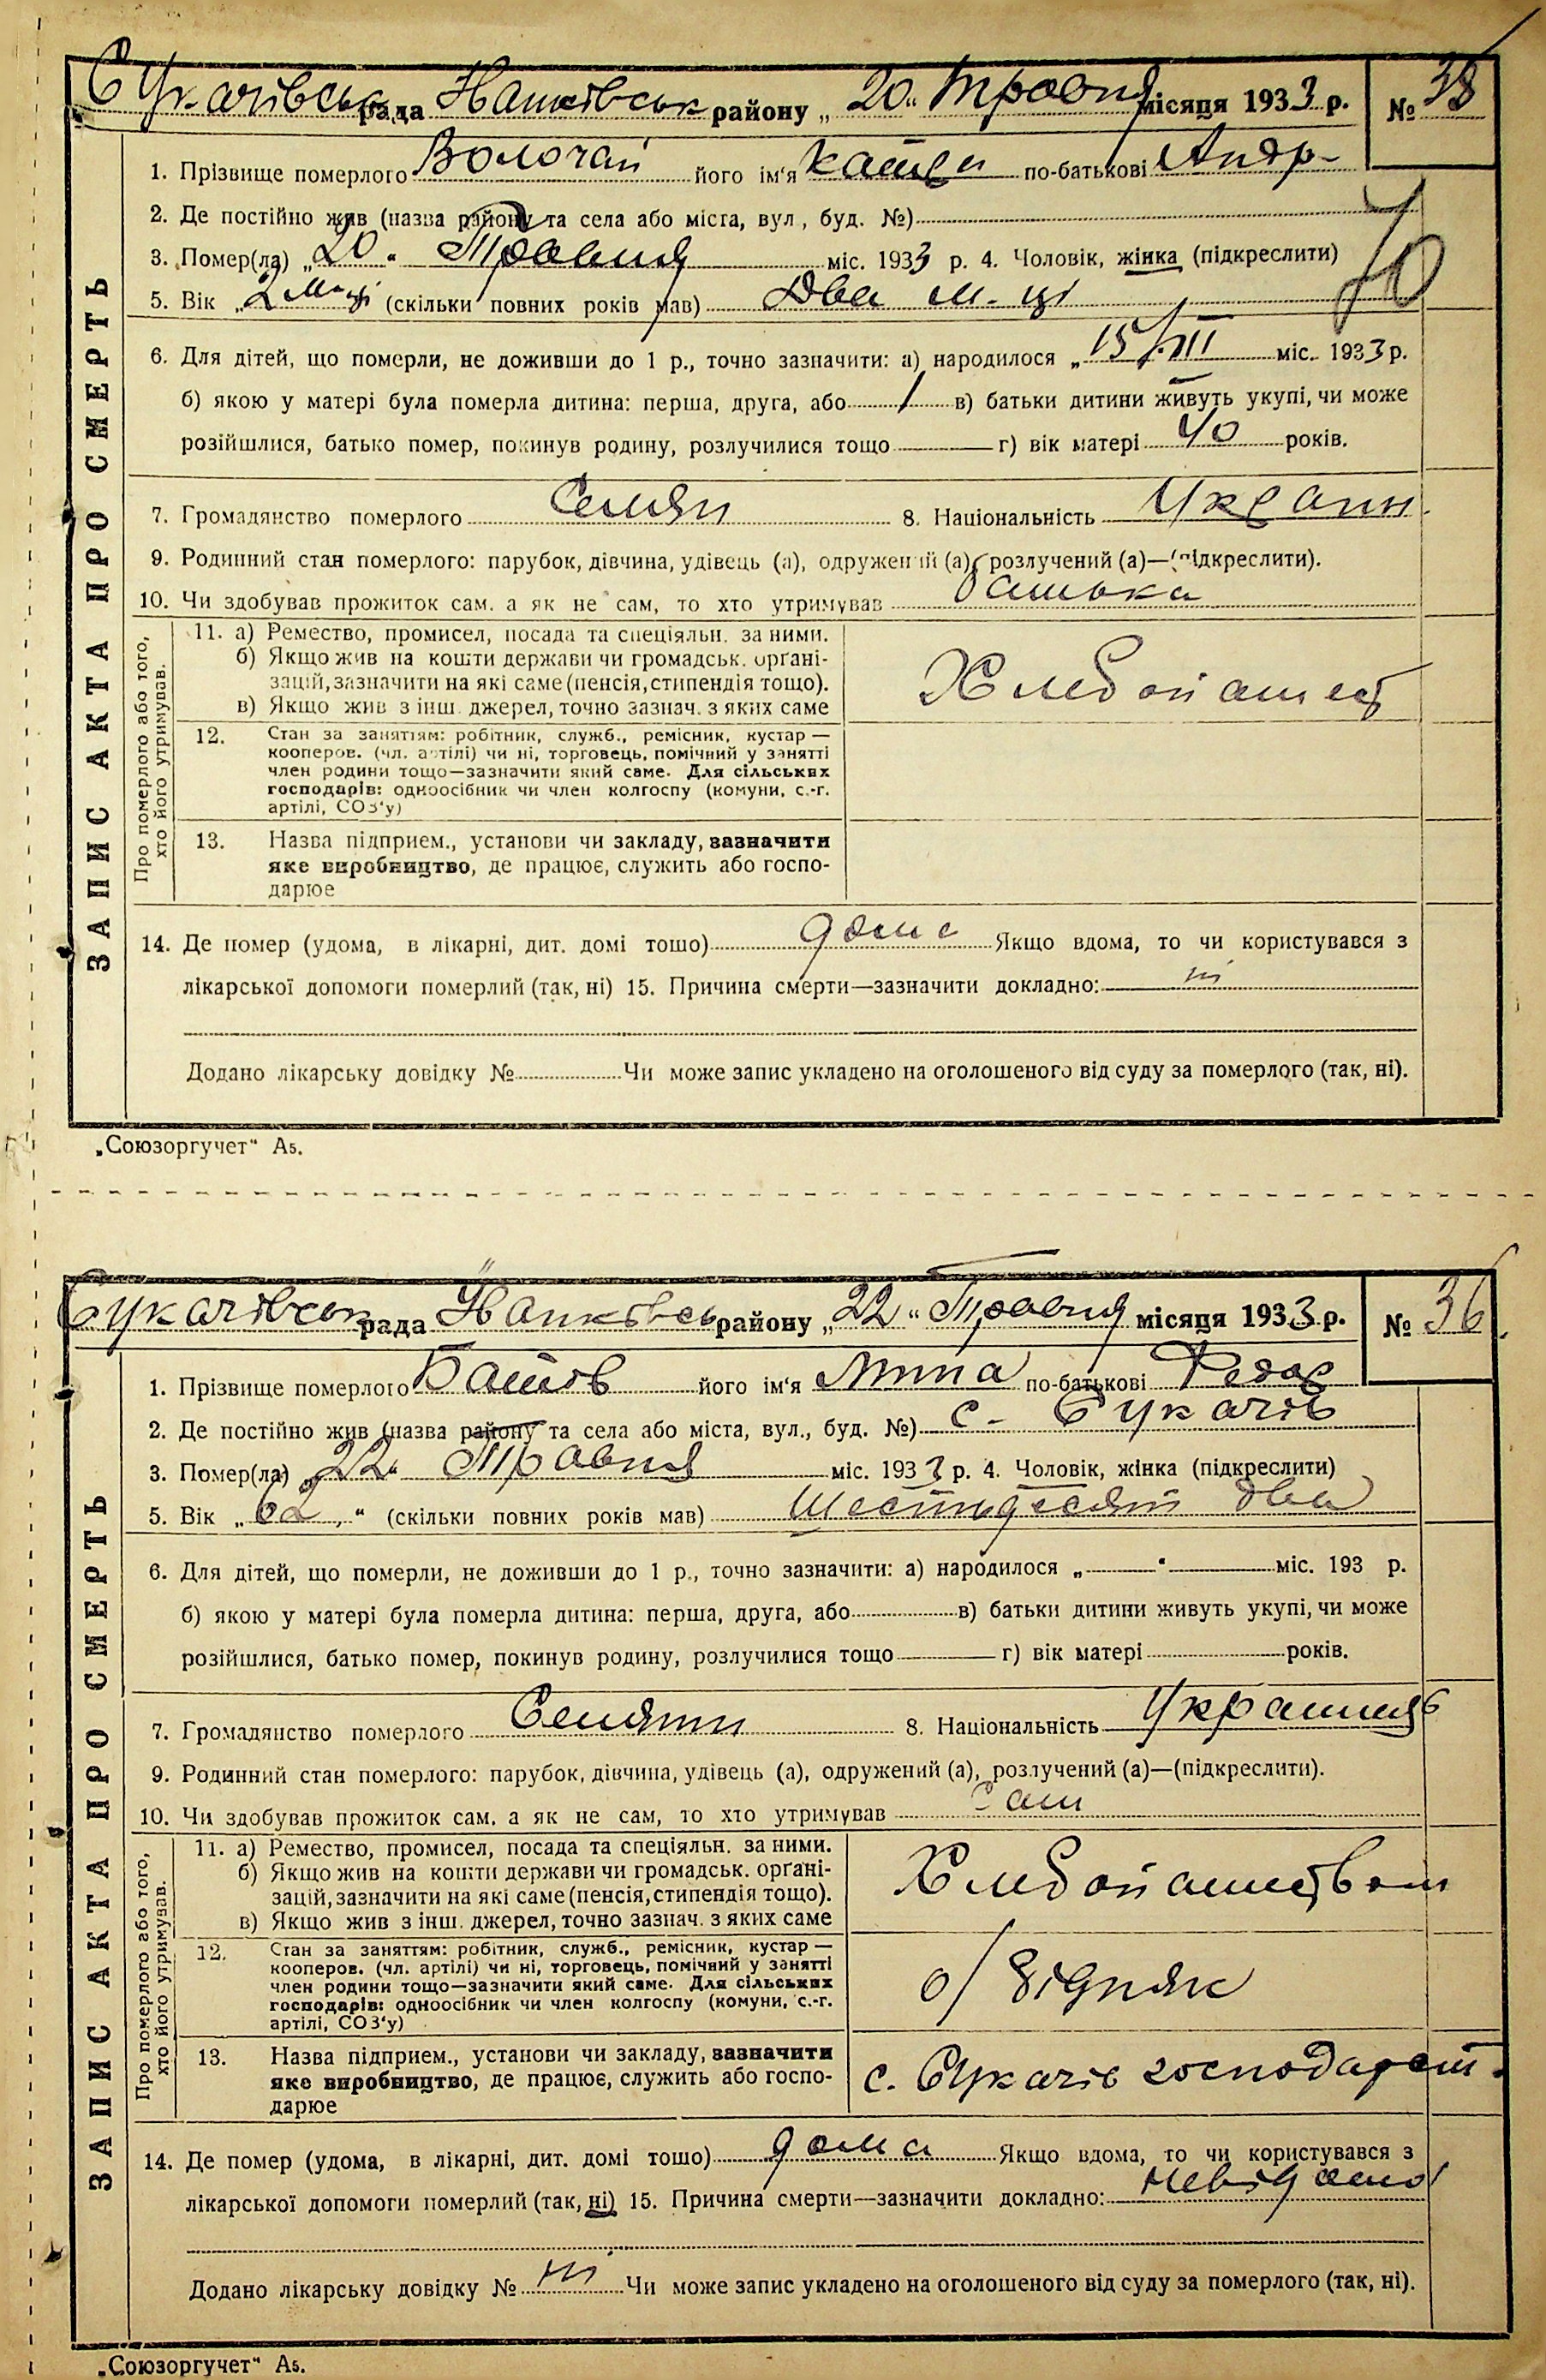 Сукачівськ рада Іванківськ району „20“ Травня місяця 1933 р. №
1. Прізвище померлого Волочай його ім‘я Катер по-батькові Андр-
2. Де постійно жив (назва району та села або міста, вул., буд. №)
3. Помер(ла) „20“ Травня міс. 1933 р. 4. Чоловік, жінка (підкреслити)
5. Вік „2 м-ці (скільки повних років мав) Два м-ці
6. Для дітей, що померли, не доживши до 1 р., точно зазначити: а) народилося „15/III міс. 1933 р.
б) якою у матері була померла дитина: перша, друга, або / в) батьки дитини живуть укупі, чи може
розійшлися, батько помер, покинув родину, розлучилися тощо г) вік матері 40 років.
7. Громадянство померлого Селян 8. Національність Україн.
9. Родинний стан померлого: парубок, дівчина, удівець (а), одружений (а), розлучений (а)—(підкреслити).
10. Чи здобував прожиток сам, а як не сам, то хто утримував батька
ЗАПИС АКТА ПРО СМЕРТЬ
Про померлого або того,
хто його утримував.
11. а) Ремество, промисел, посада та спеціяльн. за ними.
б) Якщо жив на кошти держави чи громадськ. орґані-
зацій, зазначити на які саме (пенсія, стипендія тощо).
в) Якщо жив з інш. джерел, точно зазнач. з яких саме
12. Стан за заняттям: робітник, служб., ремісник, кустар —
кооперов. (чл. артілі) чи ні, торговець, помічний у занятті
член родини тощо—зазначити який саме. Для сільських
господарів: одноосібник чи член колгоспу (комуни, с.-г.
артілі, СОЗ‘у)
13. Назва підприєм., установи чи закладу, зазначити
яке виробництво, де працює, служить або госпо-
дарює
14. Де помер (удома, в лікарні, дит. домі тощо) дома Якщо вдома, то чи користувався з
лікарської допомоги померлий (так, ні) 15. Причина смерти—зазначити докладно: ні
Додано лікарську довідку № Чи може запис укладено на оголошеного від суду за померлого (так, ні).
„Союзоргучет“ А5.
Сукачівськ рада Іванківсь району „22“ Травня місяця 1933 р. № 36
1. Прізвище померлого його ім‘я по-батькові Федор
2. Де постійно жив (назва району та села або міста, вул., буд. №) с. Сукачів
3. Помер(ла) „22“ Травня міс. 1933 р. 4. Чоловік, жінка (підкреслити)
5. Вік „62“ (скільки повних років мав) Шестидесят два
6. Для дітей, що померли, не доживши до 1 р., точно зазначити: а) народилося „ “ міс. 193 р.
б) якою у матері була померла дитина: перша, друга, або в) батьки дитини живуть укупі, чи може
розійшлися, батько помер, покинув родину, розлучилися тощо г) вік матері років.
7. Громадянство померлого Селянин 8. Національність
9. Родинний стан померлого: парубок, дівчина, удівець (а), одружений (а), розлучений (а)—(підкреслити).
10. Чи здобував прожиток сам, а як не сам, то хто утримував Сам
ЗАПИС АКТА ПРО СМЕРТЬ
Про померлого або того,
хто його утримував.
11. а) Ремество, промисел, посада та спеціяльн. за ними.
б) Якщо жив на кошти держави чи громадськ. орґані-
зацій, зазначити на які саме (пенсія, стипендія тощо).
в) Якщо жив з інш. джерел, точно зазнач. з яких саме
Хлебопашеством
12. Стан за заняттям: робітник, служб., ремісник, кустар —
кооперов. (чл. артілі) чи ні, торговець, помічний у занятті
член родини тощо—зазначити який саме. Для сільських
господарів: одноосібник чи член колгоспу (комуни, с.-г.
артілі, СОЗ‘у)
о/бідняк
13. Назва підприєм., установи чи закладу, зазначити
яке виробництво, де працює, служить або госпо-
дарює
с. Сукачів господарст.
14. Де помер (удома, в лікарні, дит. домі тощо) дома Якщо вдома, то чи користувався з
лікарської допомоги померлий (так, ні) 15. Причина смерти—зазначити докладно: невідомо
Додано лікарську довідку № ні Чи може запис укладено на оголошеного від суду за померлого (так, ні).
„Союзоргучет“ А5.